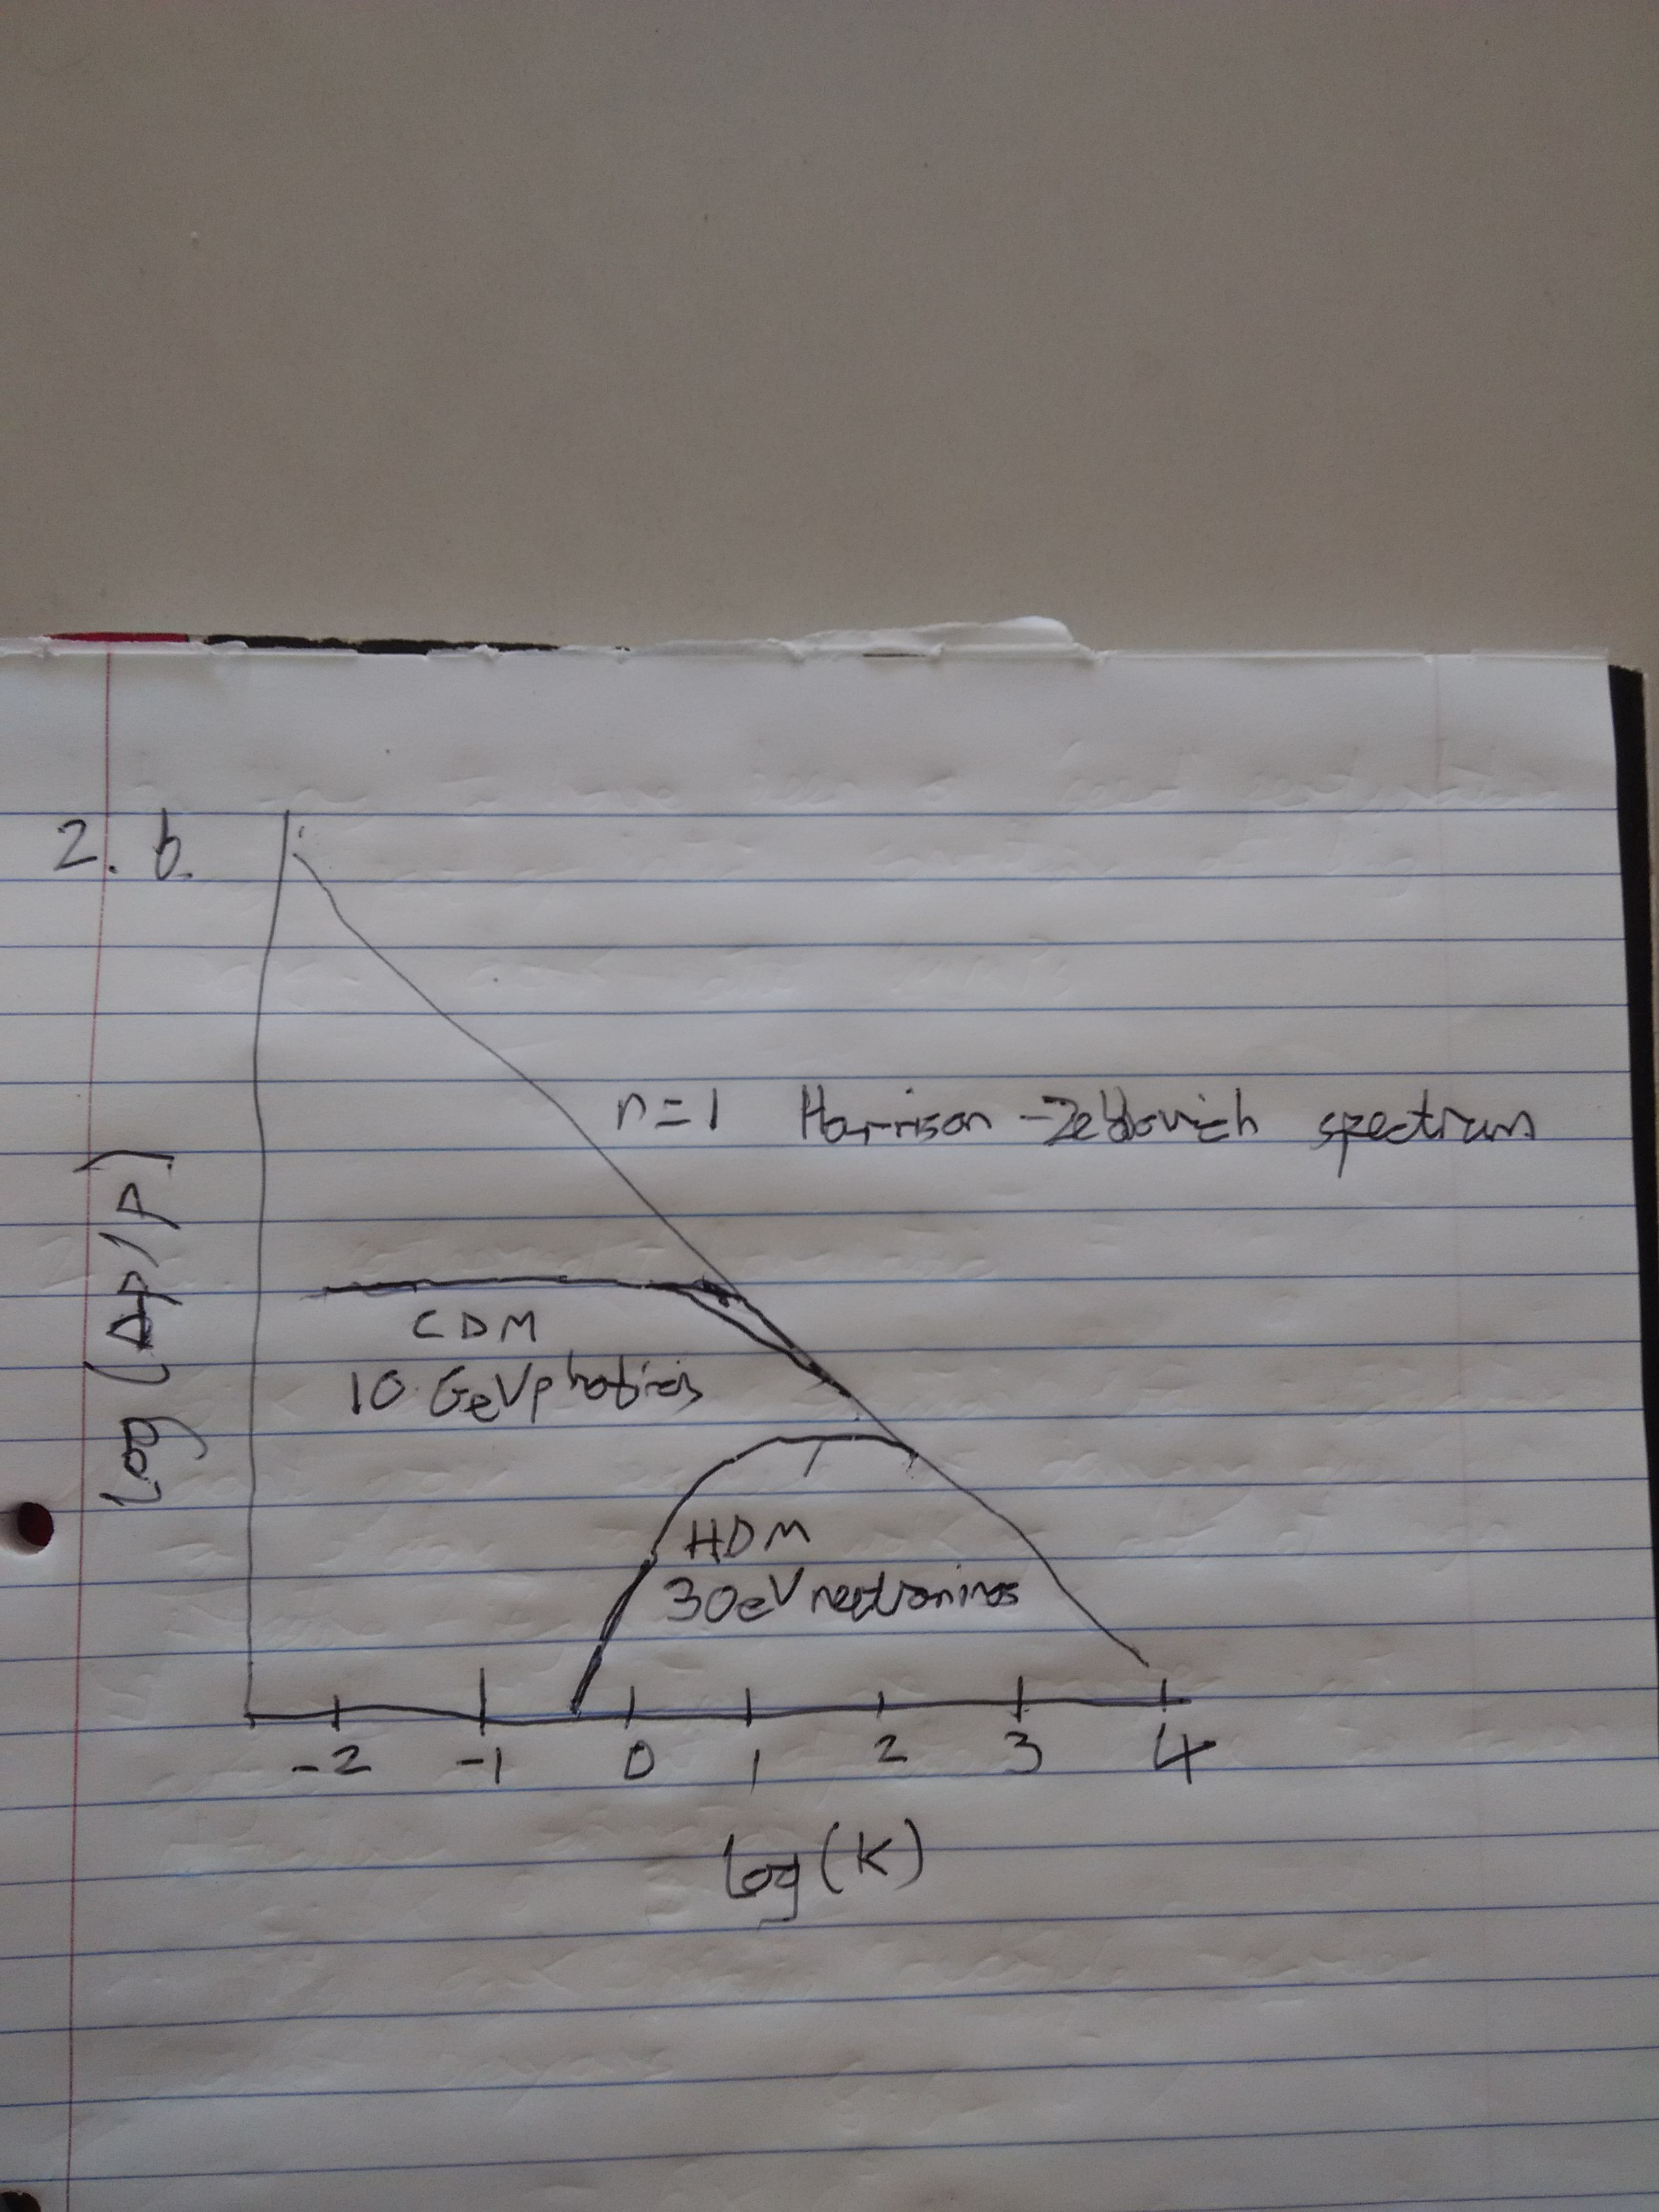 2. b.
n=1 Harrison-Zeldovich spectrum
log(Δρ/ρ)
CDM
10 GeV photinos
HDM
30eV neutrinos
-2 -1 0 1 2 3 4
log(k)